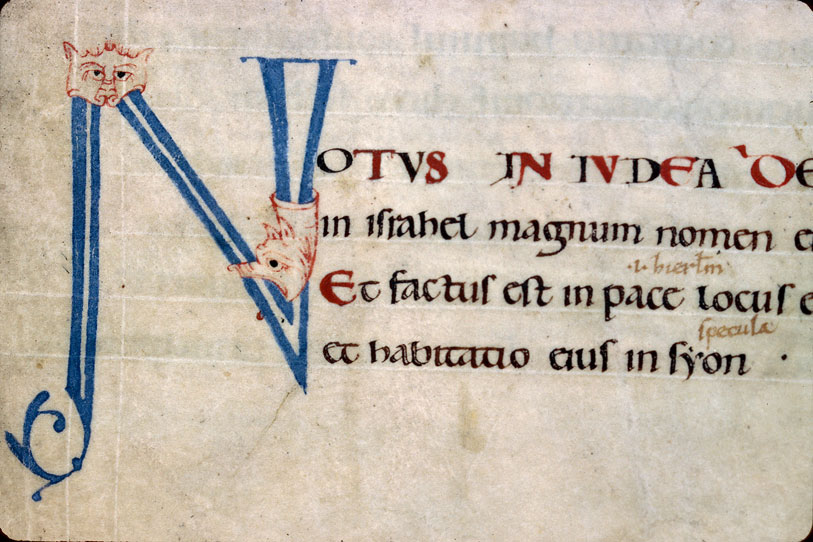 NOTUS IN IUDEA DE
in israhel magnum nomen e
.i. hierłm
Et factus est in pace locus e
specula
et habitatio eius in syon .